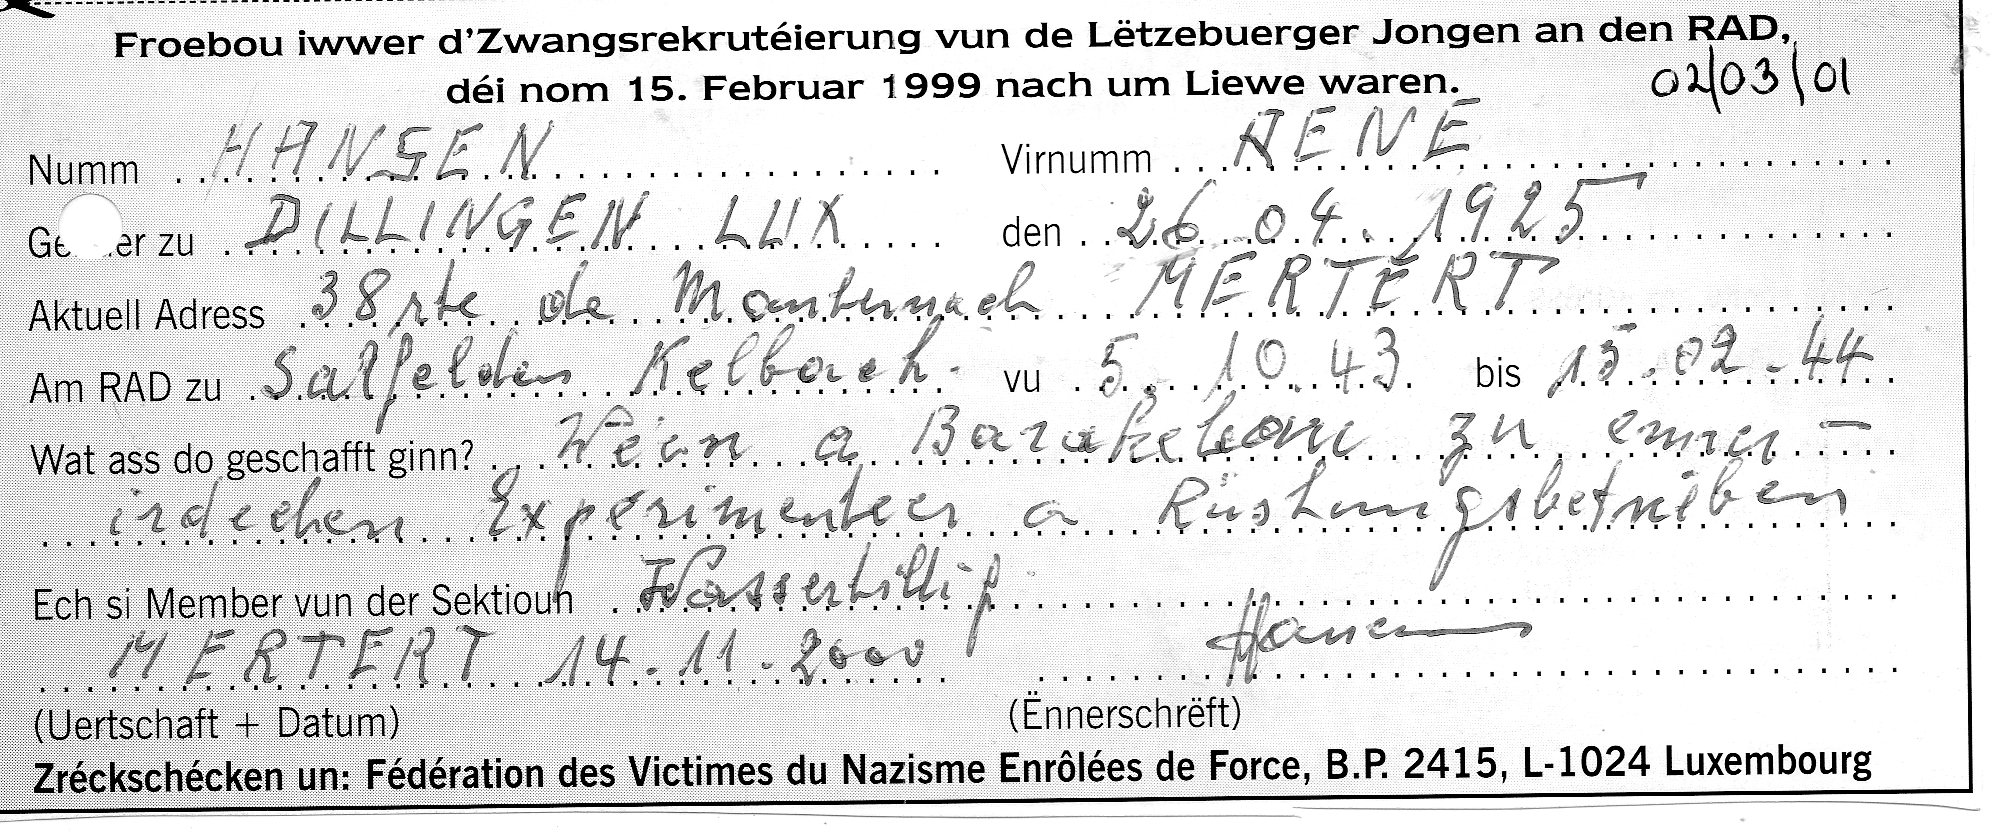 Froebou iwwer d'Zwangsrekrutéierung vun de Lëtzebuerger Jongen an den RAD,
déi nom 15. Februar 1999 nach um Liewe waren. 02/03/01
Numm HANSEN Virnumm RENE
Ge er zu DILLINGEN LUX den 26.04.1925
Aktuell Adress 38 rte de Manternach MERTERT
Am RAD zu Salfelden Kelbach. vu 5.10.43 bis 15.02.44
Wat ass do geschafft ginn? a zu enner-
irdechen a Rüstungsbetrieben
Ech si Member vun der Sektioun Wasserbillig
MERTERT 14.11.2000
(Uertschaft + Datum) (Ënnerschrëft)
Zréckschécken un: Fédération des Victimes du Nazisme Enrôlées de Force, B.P. 2415, L-1024 Luxembourg